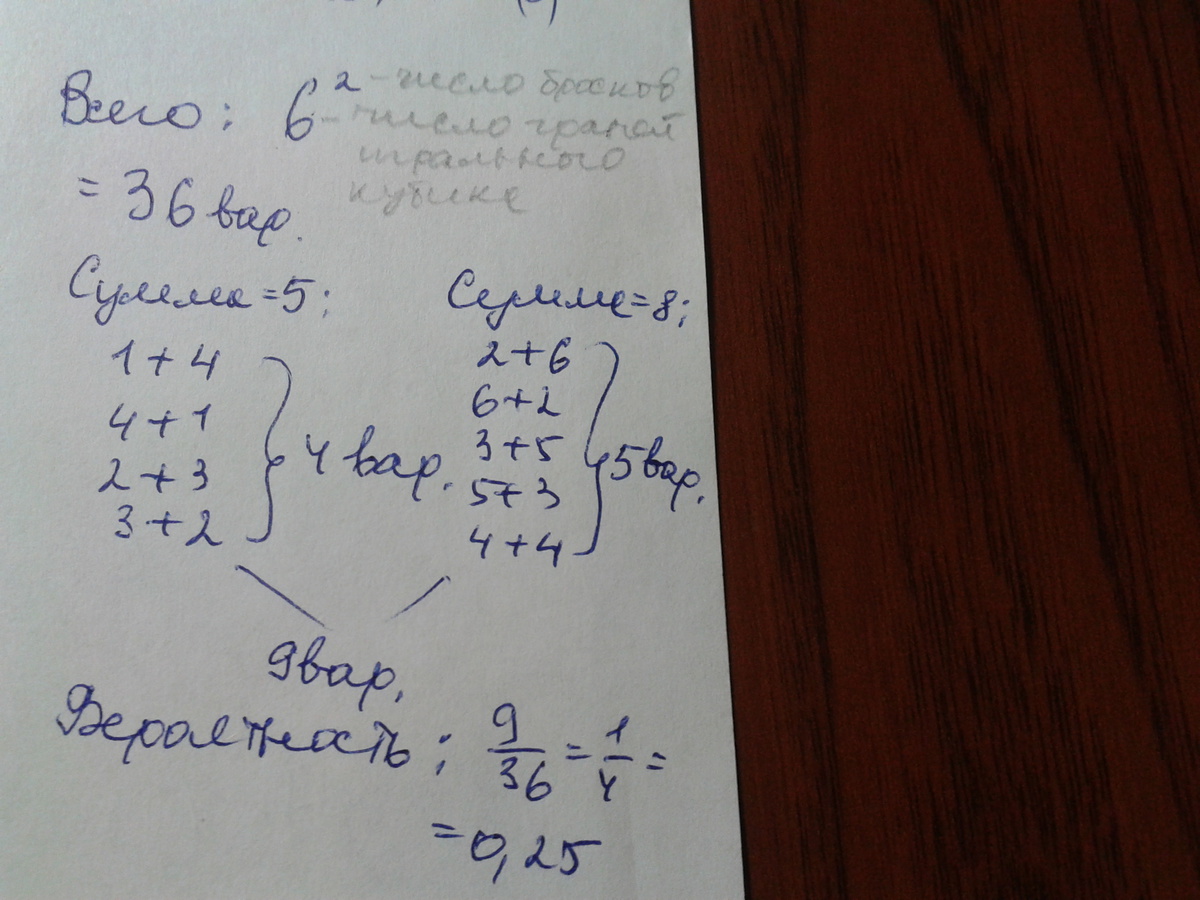 Всего: 6² - число бросков
- число граней
игрального
кубика
= 36 вар.
Сумма = 5; Сумма = 8;
1 + 4 2 + 6
4 + 1 6 + 2
2 + 3 3 + 5
4 вар. 5 вар.
3 + 2 5 + 3
4 + 4
9 вар.
Вероятность: 9/36 = 1/4 =
= 0,25